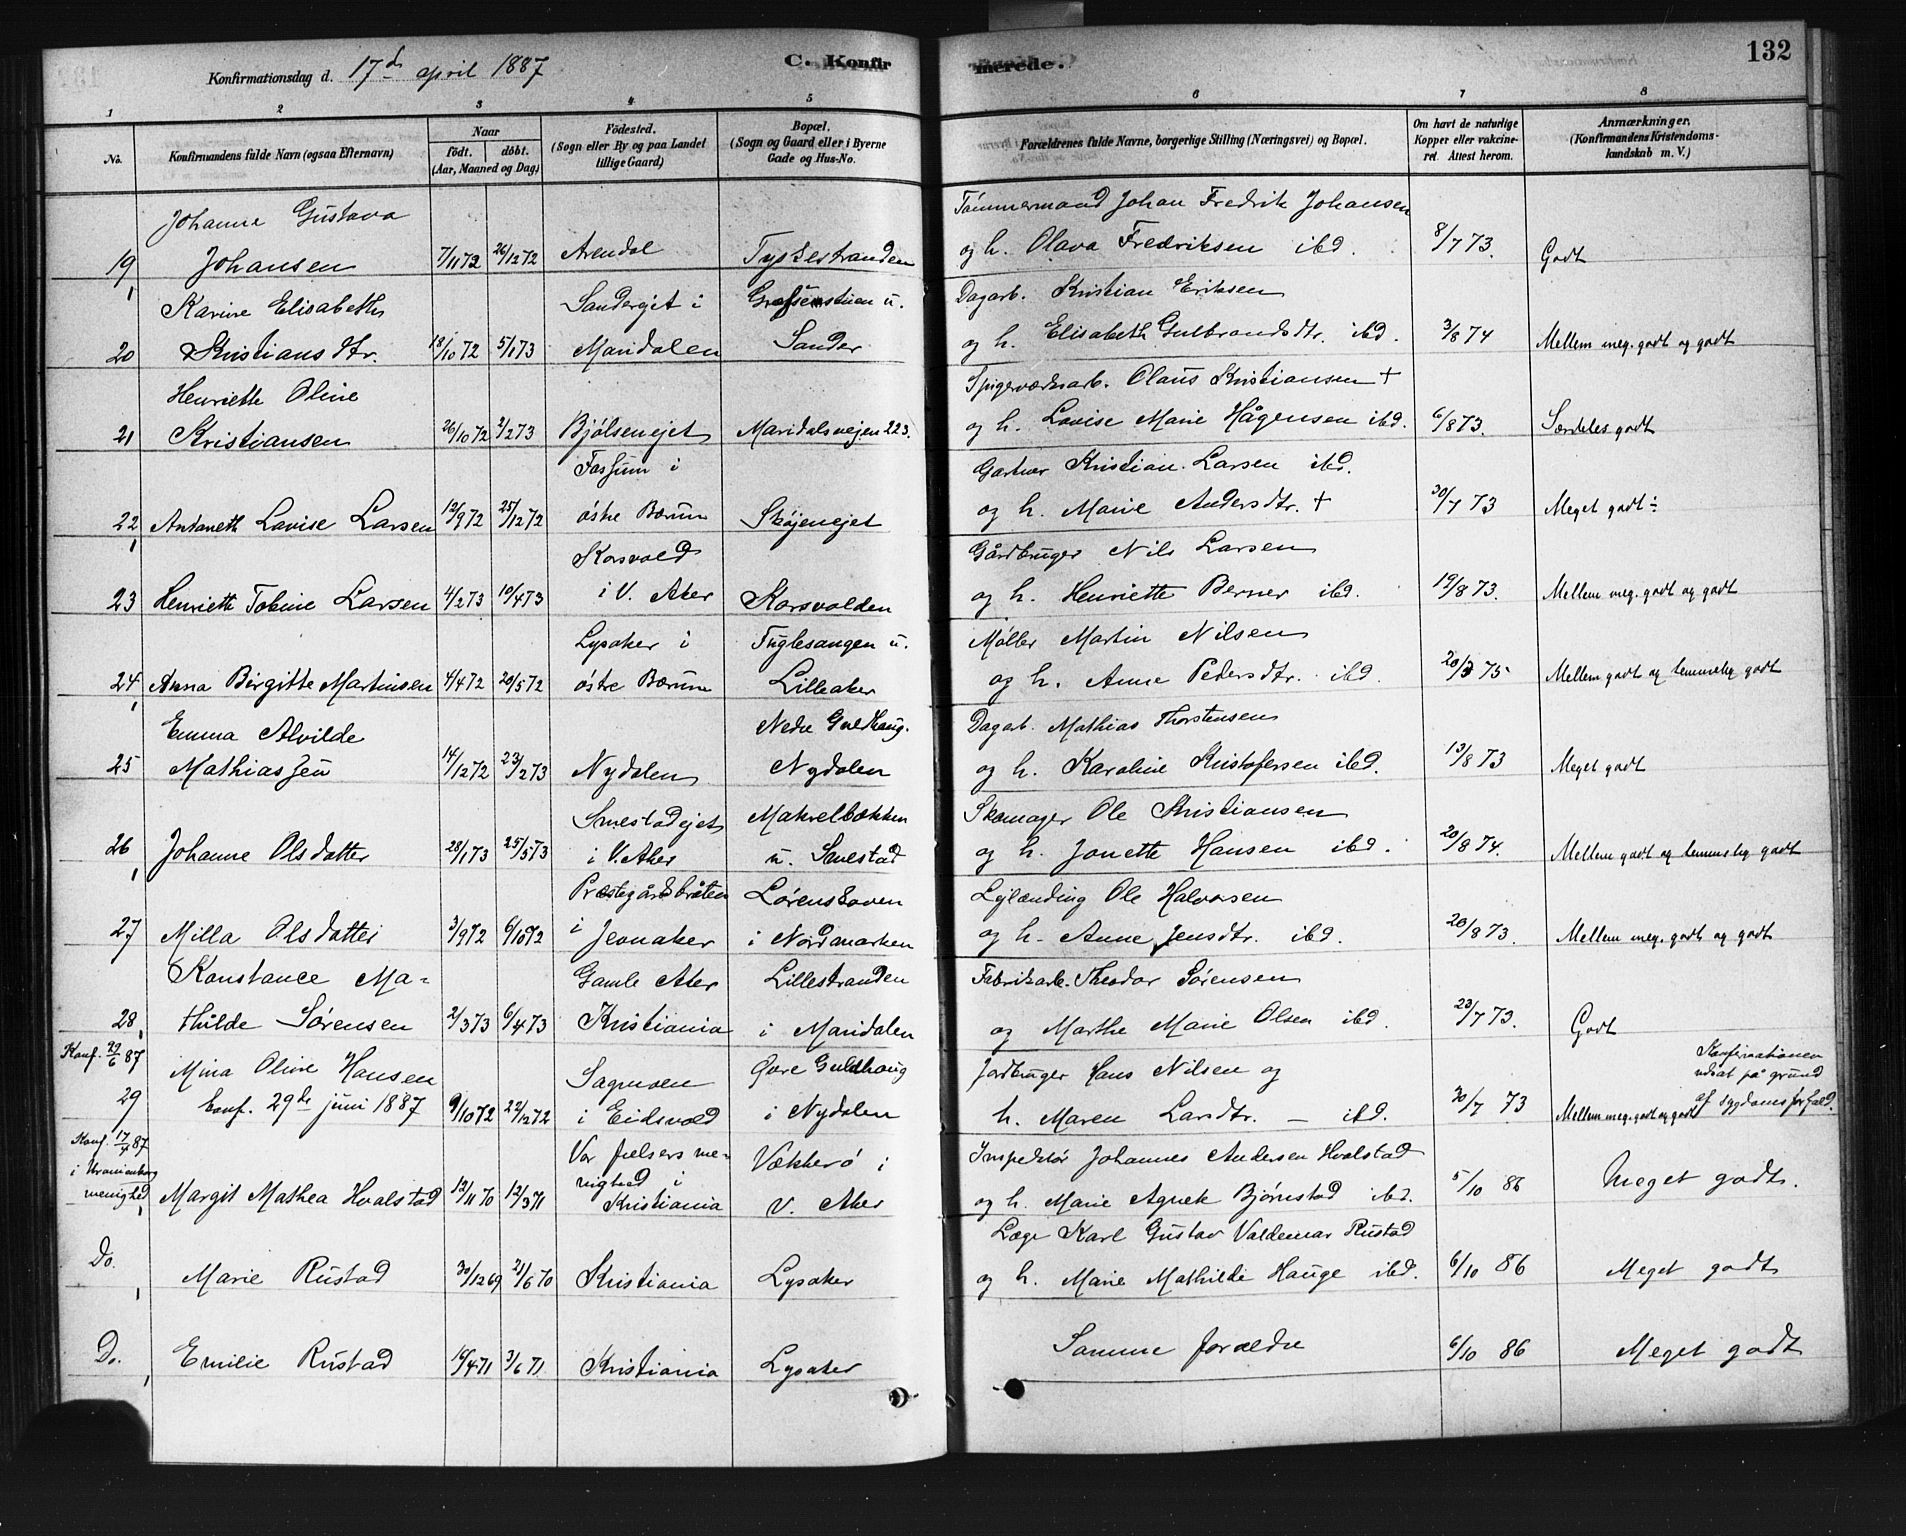 Konfirmationsdag d. 17de april 1887
C. Konfirmerede.
132
1 2 3 4 5 6 7 8
No.
Konfirmandens fulde Navn (ogsaa Efternavn)
Naar
født. døbt.
(Aar, Maaned og Dag)
Fødested.
(Sogn eller By og paa Landet
tillige Gaard)
Bopæl.
(Sogn og Gaard eller i Byerne
Gade og Hus-No.
Forældrenes fulde Navne, borgerlige Stilling (Næringsvei) og Bopæl.
Om havt de naturlige
Kopper eller vakcineret. Attest herom.
Anmærkninger.
(Konfirmandens Kristendomskundskab m. V.)
Johanne Gustava Tømmermand Johan Fredrik Johansen
19 Johansen 7/11 72 26/12 72 Arendal Tyskestranden og h. Olava Fredriksen ibd. 8/7 73. Godt
Karine Elisabeth Sanderejet i Græssenstuen u. Dagarb. Kristian Eriksen
20 Kristiansdtr. 18/10 72 5/1 73 Maridalen Sander og h. Elisabeth Gulbrandsdtr. ibd. 3/8 74 Mellem meg. godt og godt
Henriette Oline Spigerværksarb. Olaus Kristiansen +
21 Kristiansen 26/10 72 2/2 73 Bjølsenejet Maridalsvejen 223. og h. Lovise Marie Hågensen ibd. 6/8 73. Særdeles godt
Fossum i Gartner Kristian Larsen ibd.
22 Antoneth Lovise Larsen 12/9 72 25/12 72 østre Bærum Skøjenejet og h. Marie Andersdtr. + 30/7 73 Meget godt ÷
Korsvold Gårdbruger Nils Larsen
23 Henriette Tobine Larsen 4/2 73 10/4 73 i V. Aker Korsvolden og h. Henriette Berner ibd. 19/8 73. Mellem meg. godt og godt
Lysaker i Fuglesangen u. Møller Martin Nilsen
24 Anna Birgitte Martinsen 4/4 72 20/5 72 østre Bærum Lilleaker og h. Anne Pedersdtr. ibd. 20/3 75 Mellem godt og temmelig godt
Emma Alvilde Nedre Guldhaug. Dagarb. Mathias Thorstensen
25 Mathiassen 14/12 72 23/2 73 Nydalen Nydalen og h. Karoline Kristofersen ibd. 13/8 73 Meget godt
Smestadejet Makrelbækken Skomager Ole Kristiansen
26 Johanne Olsdatter 28/1 73 25/5 73 i V. Aker u. Smestad og h. Jonette Hansen ibd. 20/8 74. Mellem godt og temmelig godt
Præstegårdsbråten Lørenskoven Lejlænding Ole Halvorsen
27 Milla Olsdatter 3/9 72 6/10 72 i Jevnaker i Nordmarken og h. Anne Jensdtr. ibd. 20/8 73. Mellem meg. godt og godt
Konstance Ma- Gamle Aker Lillestranden Fabrikarb. Theodor Sørensen
28 thilde Sørensen 2/3 73 6/4 73 Kristiania i Maridalen og Marthe Marie Olsen ibd. 23/7 73. Godt
Konf. 29/6 87 Mina Oline Hansen Sagmoen Øvre Guldhaug Jordbruger Hans Nilsen og Konfirmationen
udsat på grund
29 conf. 29de juni 1887 9/10 72 22/12 72 i Eidsvold i Nydalen h. Maren Larsdtr. — ibd. 30/7 73 Mellem meg. godt og godt af sygdomsforfald.
Konf. 17/4 87 Vor frelsers me- Vækkerø i Inspektør Johannes Andersen Hvalstad
i Uranienborg
menighed Margit Mathea Hvalstad 12/11 70 12/3 71 nighed i Kristiania V. Aker og h. Marie Agnete Bjørnstad ibd. 5/10 86 Meget godt.
Læge Karl Gustav Valdemar Rustad
Do. Marie Rustad 30/12 69 21/6 70 Kristiania Lysaker og h. Marie Mathilde Hauge ibd. 6/10 86 Meget godt
Do. Emilie Rustad 16/4 71 3/6 71 Kristiania Lysaker Samme forældre 6/10 86 Meget godt